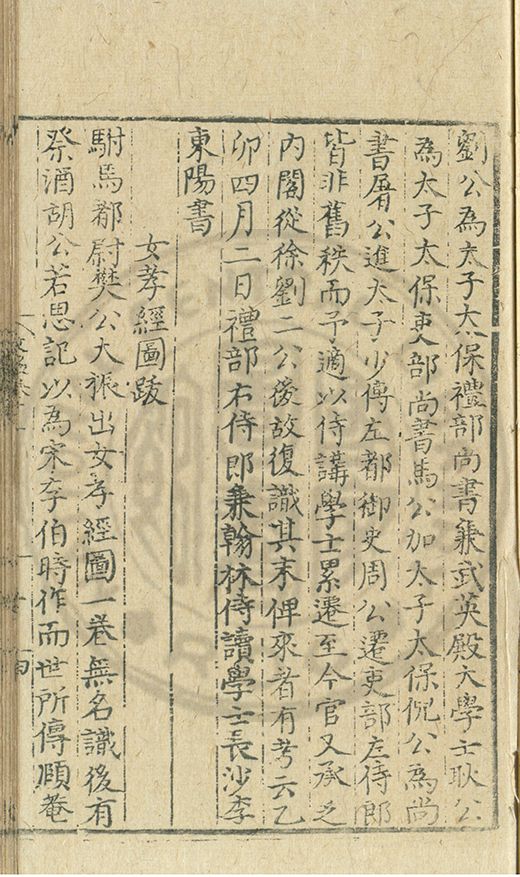 劉公為太子太保禮部尚書兼武英殿大學士耿公
為太子太保吏部尚書馬公加太子太保倪公為尚
書屠公進太子少傅左都御史周公遷吏部左侍郎
皆非舊秩而予適以侍講學士累遷至今官又承乏
內閣從徐劉二公後故復識其末俾來者有考云乙
卯四月二日禮部右侍郎兼翰林侍讀學士長沙李
東陽書
女孝經圖跋
駙馬都尉樊公大振出女孝經圖一卷無名識後有
祭酒胡公若思記以為宋李伯時作而世所傳順菴